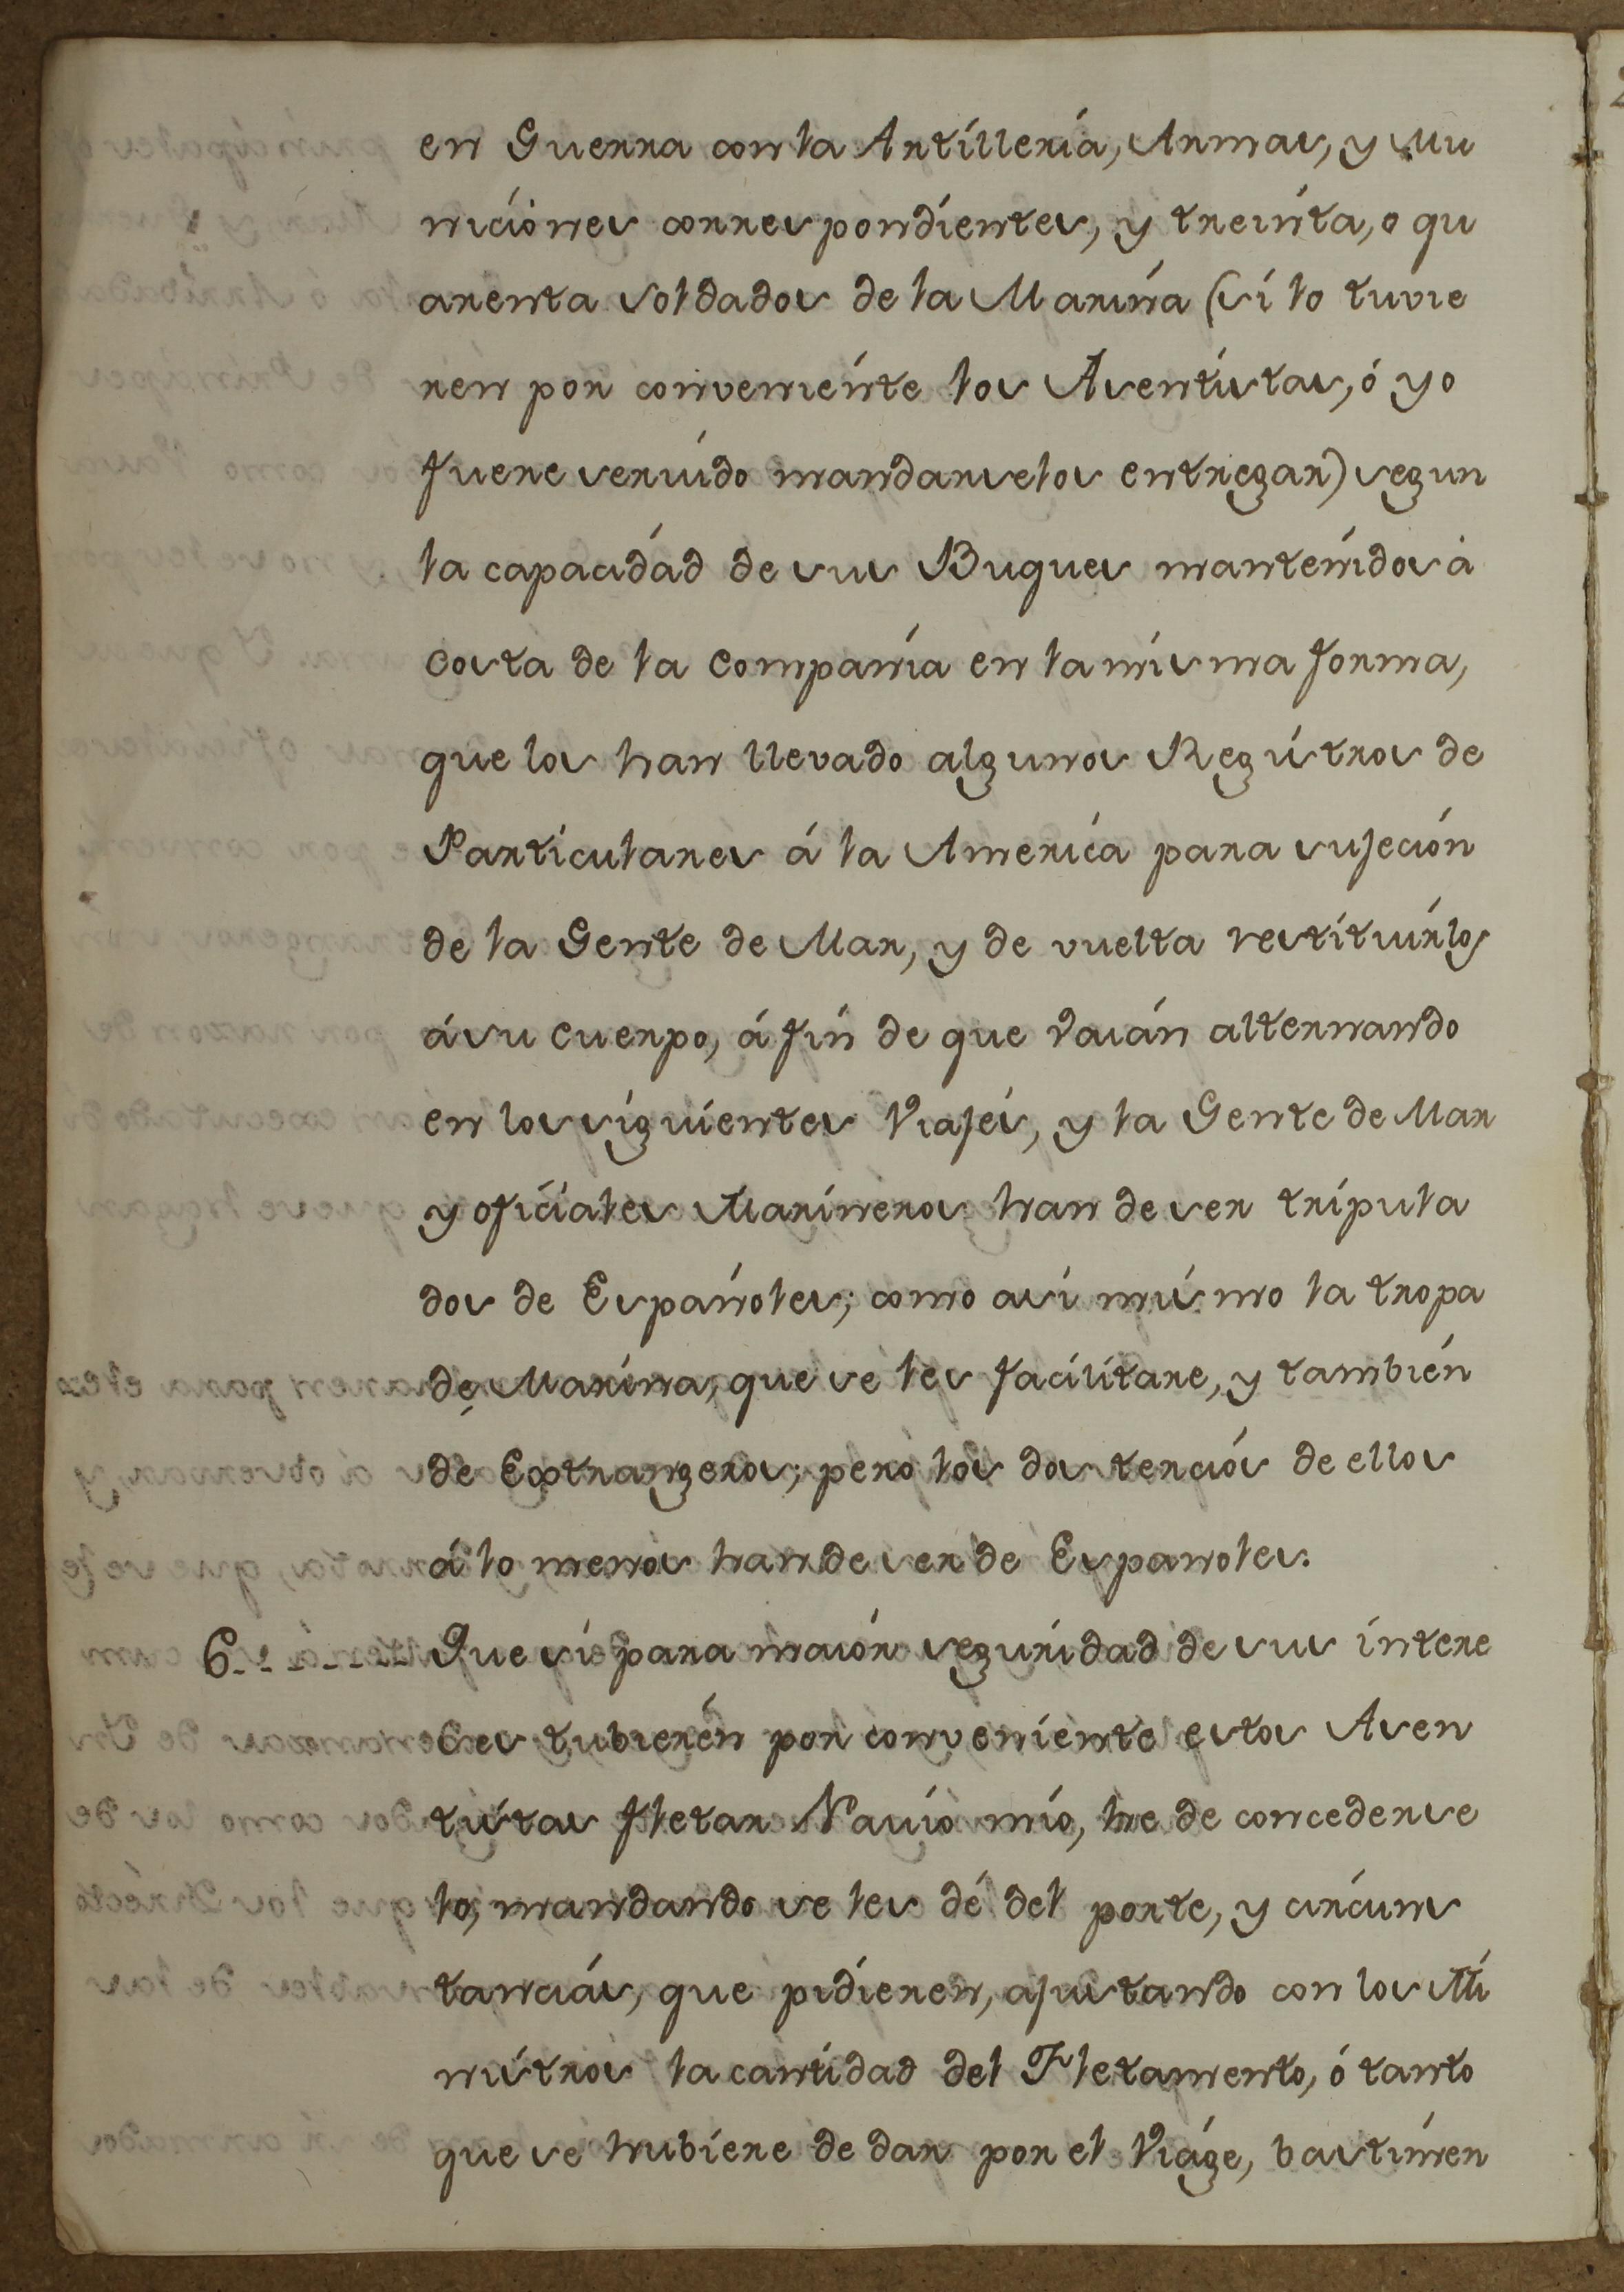 en Guerra con la Artilleria, Armas, y Mu
niciones correspondientes, y treinta, o qu
arenta soldados de la Marina (si lo tuvie
ren por conveniente los Asentistas, ó yo
fuere servido mandarselos entregar) segun
la capacidad de sus Buques mantenidos á
costa de la Compania en la misma forma,
que los han llevado algunos Registros de
Particulares á la America para sujecion
de la Gente de Mar, y de vuelta restituirlos
á su cuerpo, á fin de que vaián alternando
en los siguientes Viajes, y la Gente de Mar
y oficiales Marineros han de ser tripula
dos de Españoles; como asi mismo la tropa
de Marina, que se les facilitare, y también
de Extrangeros; pero los dos tercios de ellos
á lo menos han de ser de Espanoles.
6 - - - - - - Que si para maiór seguridad de sus intere
ces tubierén por conveniente estos Asen
tistas fletar Navio mio, he de concederse
lo, mandando se les dé del porte, y circuns
tancias, que pidieren, ajustando con los Mi
nistros la cantidad del Fletamento, ó tanto
que se hubiere de dar por el Viáge, bastimen